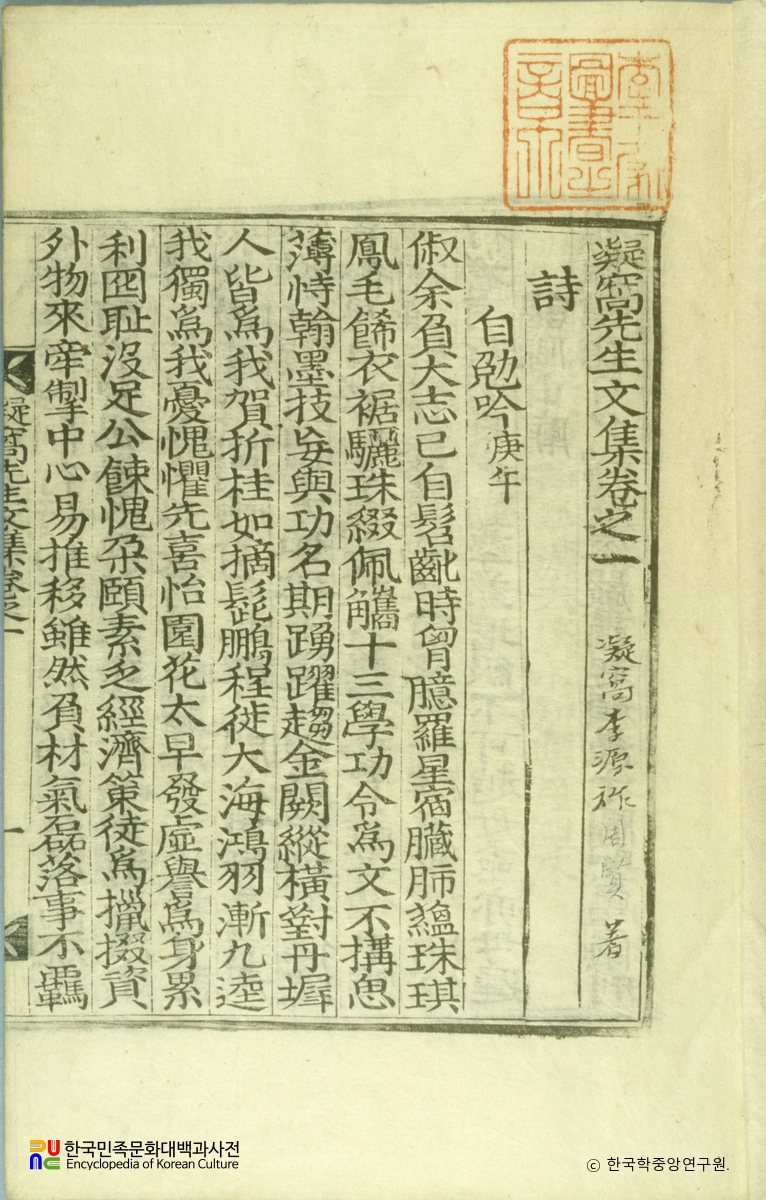 凝窩先生文集卷之一
凝窩李源祚周賢 著
詩
自勉吟 庚午
俶余負大志已自髫齔時胷臆羅星宿臟肺蘊珠琪
鳳毛餙衣裾驪珠綴佩觿十三學功令爲文不搆思
薄恃翰墨技妄與功名期踴躍趨金闕縱橫對丹墀
人皆爲我賀折桂如摘髭鵬程徙大海鴻羽漸九逵
我獨爲我憂愧懼先喜怡園花太早發虛譽爲身累
利圀耻沒足公餗愧朶頤素乏經濟策徒爲獵掇資
外物來牽掣中心易推移雖然負材氣磊落事不羈
凝窩先生文集卷之一
一
한국민족문화대백과사전
Encyclopedia of Korean Culture
© 한국학중앙연구원.